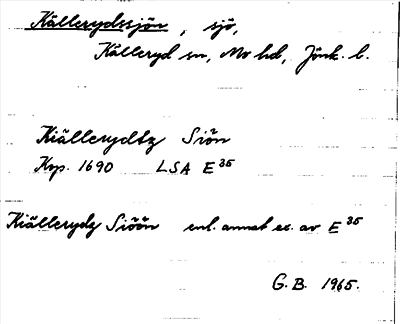 Källerydssjön, sjö,
Källeryd sn, Mo hd, Jönk. l.
Kiällerydtz Siön
Kop. 1690 LSA E 35
Kiällerydz Siöön enl. annat ex. av E 35
G. B. 1965.